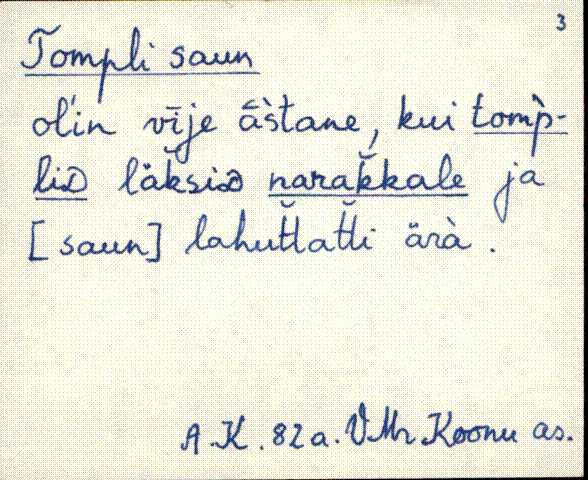 3
Tompli saun
oĺin vīje ā̀štane, kui tomp̀-
liD läk̆siD narak̆kale ja
[saun] lahut̆tat̆ti ärà.
A.K. 82 a. VMr Koonu as.